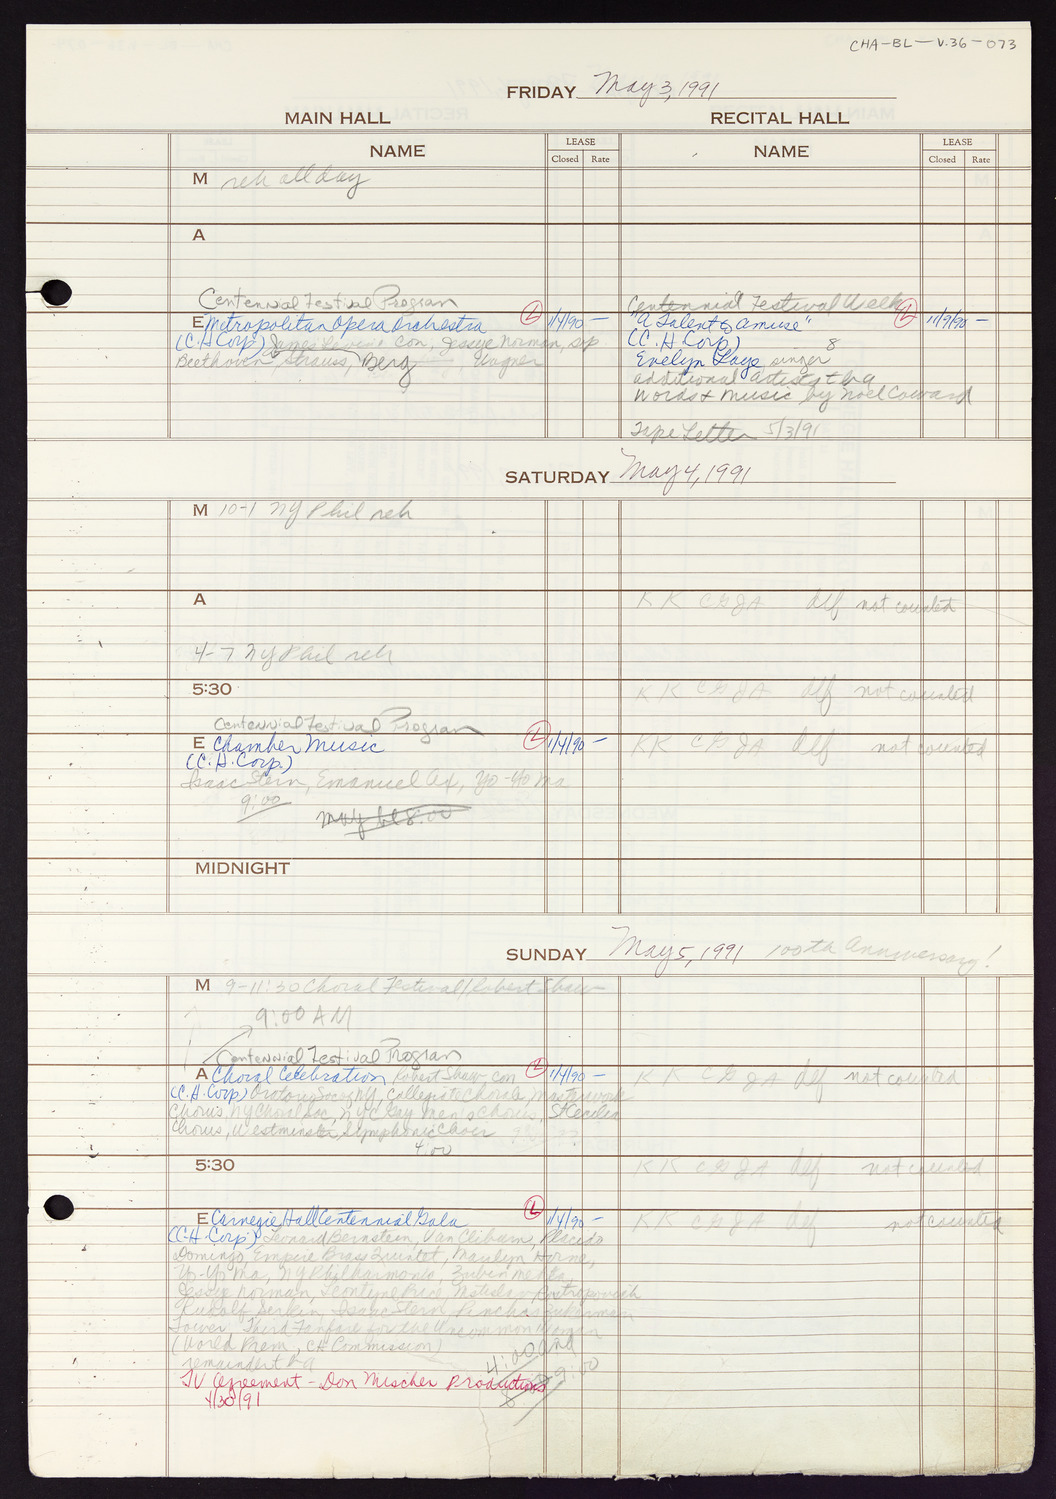 CHA-BL-V.36-073
FRIDAY May 3, 1991
MAIN HALL
RECITAL HALL
NAME
LEASE
Closed Rate
NAME
LEASE
Closed Rate
M reh all day
A
Centennial Festival Program
E Metropolitan Opera Orchestra L 1/4/90 —
(C.H.Corp) James Levine con, Jessye Norman, sop
Beethoven, Strauss, Berg Wagner
Centennial Festival Week
"A Talent to Amuse" L 11/9/90 —
(C.H.Corp) 8
Evelyn Laye singer
additional artists t b a
words & music by Noel Coward
Tape Letter 5/3/91
SATURDAY May 4, 1991
M 10-1 NY Phil reh
A
KK CGJA def not counted
4-7 NY Phil reh
5:30
KK CGJA def not counted
Centennial Festival Program
E Chamber Music L 1/4/90 —
(C.H.Corp.)
Isaac Stern, Emanuel Ax, Yo-Yo Ma
9:00
may be 8:00
KK CGJA def not counted
MIDNIGHT
SUNDAY May 5, 1991 100th Anniversary!
M 9-11:30 Choral Festival/Robert Shaw
9:00 AM
Centennial Festival Program
A Choral Celebration Robert Shaw con L 1/4/90 —
(C.H.Corp) Oratorio Soc of NY, Collegiate Chorale, Masterwork
Chorus, NY Choral Soc, NYC Gay Men's Chorus, St Cecilia
Chorus, Westminster Symphonic Choir
4:00
KK CGJA def not counted
5:30
KK CGJA def not counted
E Carnegie Hall Centennial Gala L 1/4/90 —
(C.H.Corp) Leonard Bernstein, Van Cliburn, Placido
Domingo, Empire Brass Quintet, Marilyn Horne,
Yo-Yo Ma, NY Philharmonic, Zubin Mehta,
Jessye Norman, Leontyne Price, Mstislav Rostropovich
Rudolf Serkin, Isaac Stern, Pinchas Zukerman
Tower Third Fanfare for the Uncommon Woman
(World Prem, CH Commission)
remainder t b a
4:00 and
8:00 9:00
TV Agreement - Don Mischer Productions
4/30/91
KK CGJA def not counted